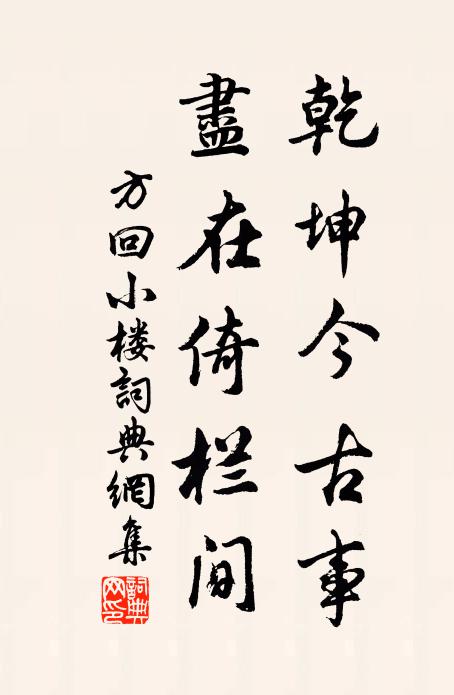 乾坤今古事
盡在倚栏間
方回小楼詞典網集
詞典网印